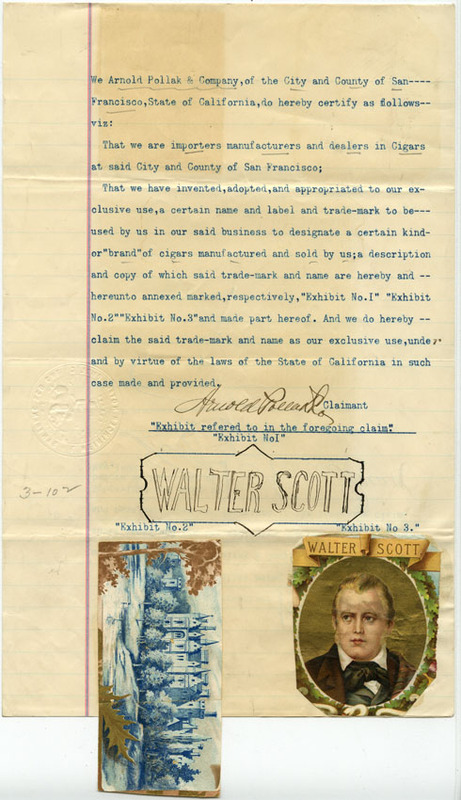 We Arnold Pollak & Company,of the City and County of San----
Francisco,State of California,do hereby certify as follows--
viz:
That we are importers manufacturers and dealers in Cigars
at said City and County of San Francisco;
That we have invented,adopted,and appropriated to our ex-
clusive use,a certain name and label and trade-mark to be---
used by us in our said business to designate a certain kind-
or"brand"of cigars manufactured and sold by us;a description
and copy of which said trade-mark and name are hereby and --
hereunto annexed marked,respectively,"Exhibit No.I" "Exhibit
No.2""Exhibit No.3"and made part hereof. And we do hereby --
claim the said trade-mark and name as our exclusive use,under
and by virtue of the laws of the State of California in such
case made and provided.
Arnold Pollak & Co Claimant
"Exhibit refered to in the foregoing claim"
"Exhibit NoI"
WALTER SCOTT
3-102
"Exhibit No.2" "Exhibit No 3."
WALTER SCOTT